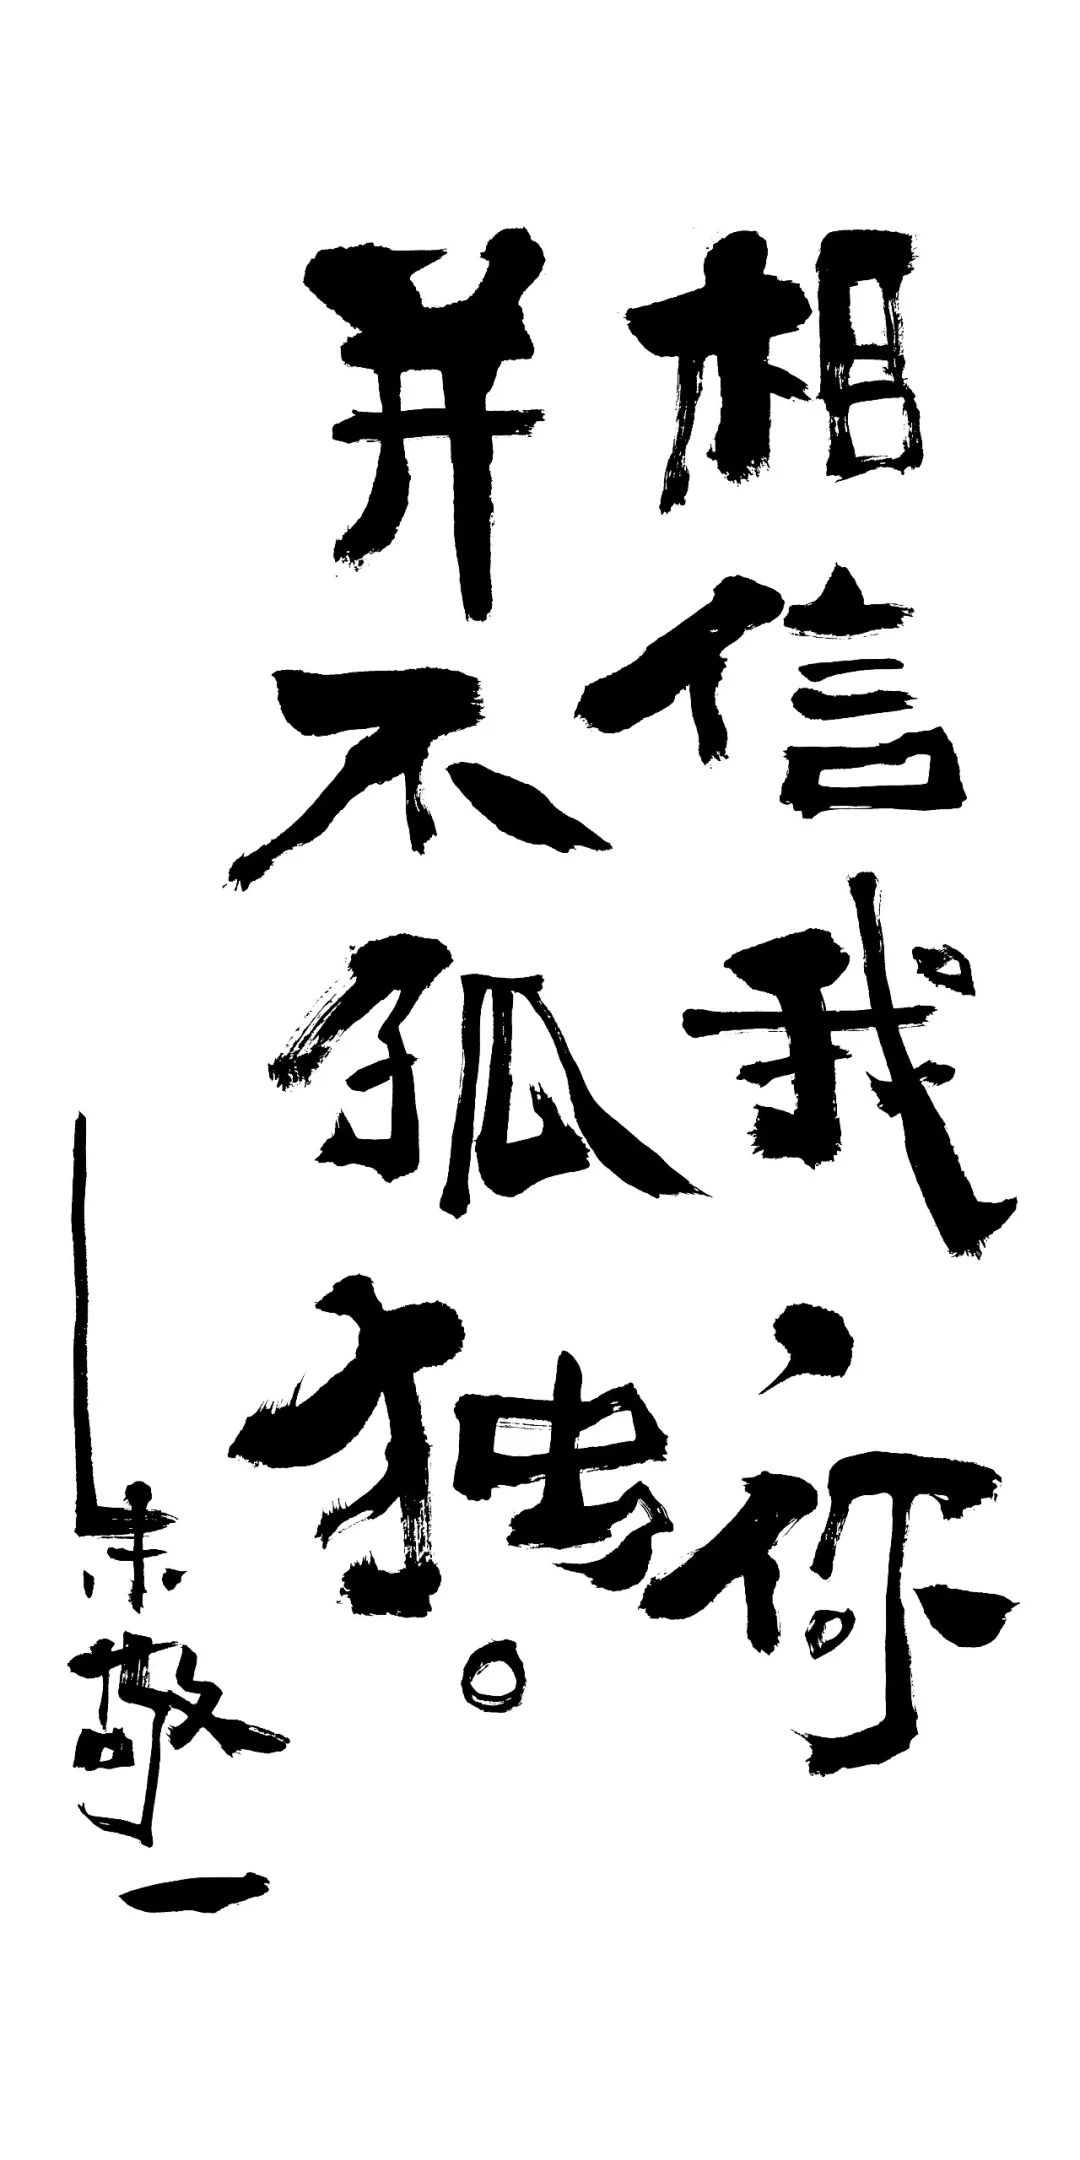 相信我，你
并不孤独。
——朱敬一